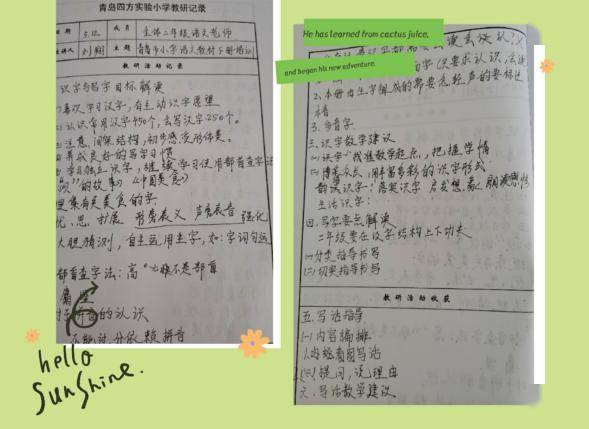 青岛四方实验小学教研记录
日期 5.12 成员 全体二年级语文老师
主讲人 主题 青岛市小学语文教材下册培训
教研活动记录
识字与写字目标解读
喜欢学习汉字，有主动识字愿望
认识常用汉字450个，会写汉字250个。
注意间架结构，初步感受形体美。
养成良好的写字习惯
学习独立识字，继续学习使用部首查字法
的故事》《中国美食》
有关美食的字
扩展 形旁表义 声旁表音 强化
大胆猜测，自主运用生字，如：字词句运
部首查字法：高
拼音的认识
不能过分依赖拼音
hello
sunshine.
He has learned from cactus juice,
and began his new adventure.
只要求认识，会读
2、本册由生字组成的需要
3、多音字
三、识字教学建议
(一)识字、找准教学起点，把握学情
(二)博采众长，用丰富多彩的识字形式
韵语识字：落实识字
生活识字：
四、写字要点解读
二年级要在汉字结构上下功夫
(一)分类指导书写
(二)切实指导书写
教研活动收获
五、写话指导
(一)内容编排
(三)提问，说理由
六、写话教学建议